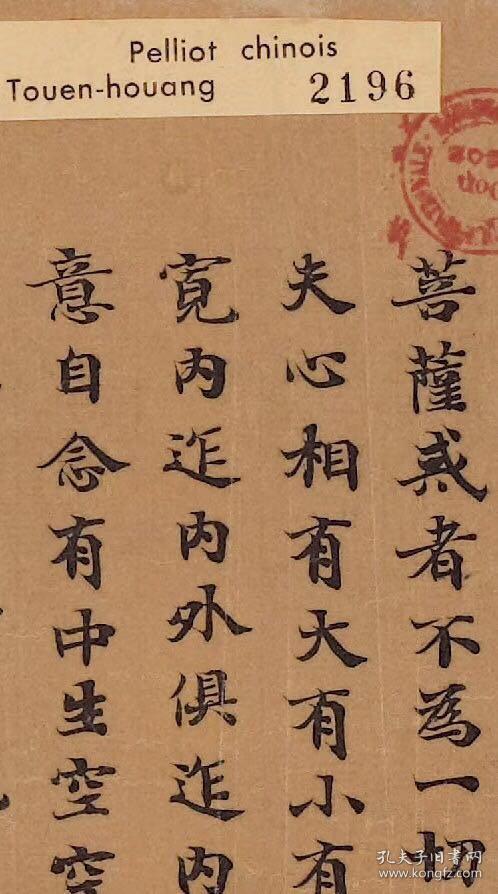 Pelliot chinois
Touen-houang 2196
菩薩戒者不為一切
夫心相有大有小有
寬內迮內外俱迮內
意自念有中生空空
孔夫子旧书网
www.kongfz.com